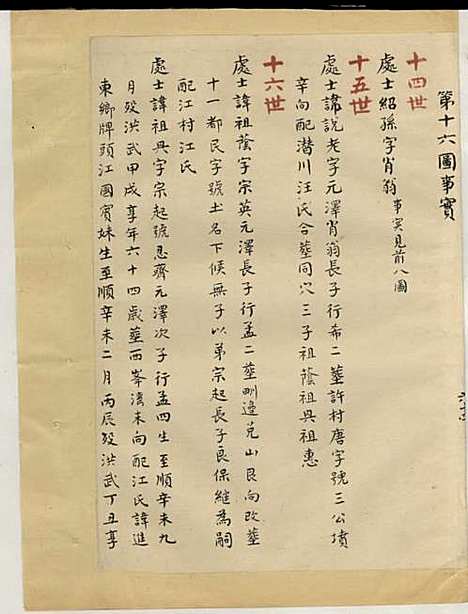 第十六圖事實
十四世
處士紹孫字肖翁 事实見前八圖
十五世
處士諱說老字元澤肖翁長子行希二塟許村唐字號三公墳
辛向配潛川汪氏合塟同穴三子祖蔭祖興祖惠
十六世
處士諱祖蔭字宗英元澤長子行孟二塟邊兑山艮向改塟
十一都民字號土名下候無子以弟宗起長子良保継為嗣
配江村江氏
處士諱祖興字宗起號忍齋元澤次子行孟四生至順辛未九
月殁洪武甲戌享年六十四歲塟西峯湾未向配江氏諱進
東鄉牌頭江國賓妹生至順辛未二月丙辰殁洪武丁丑享